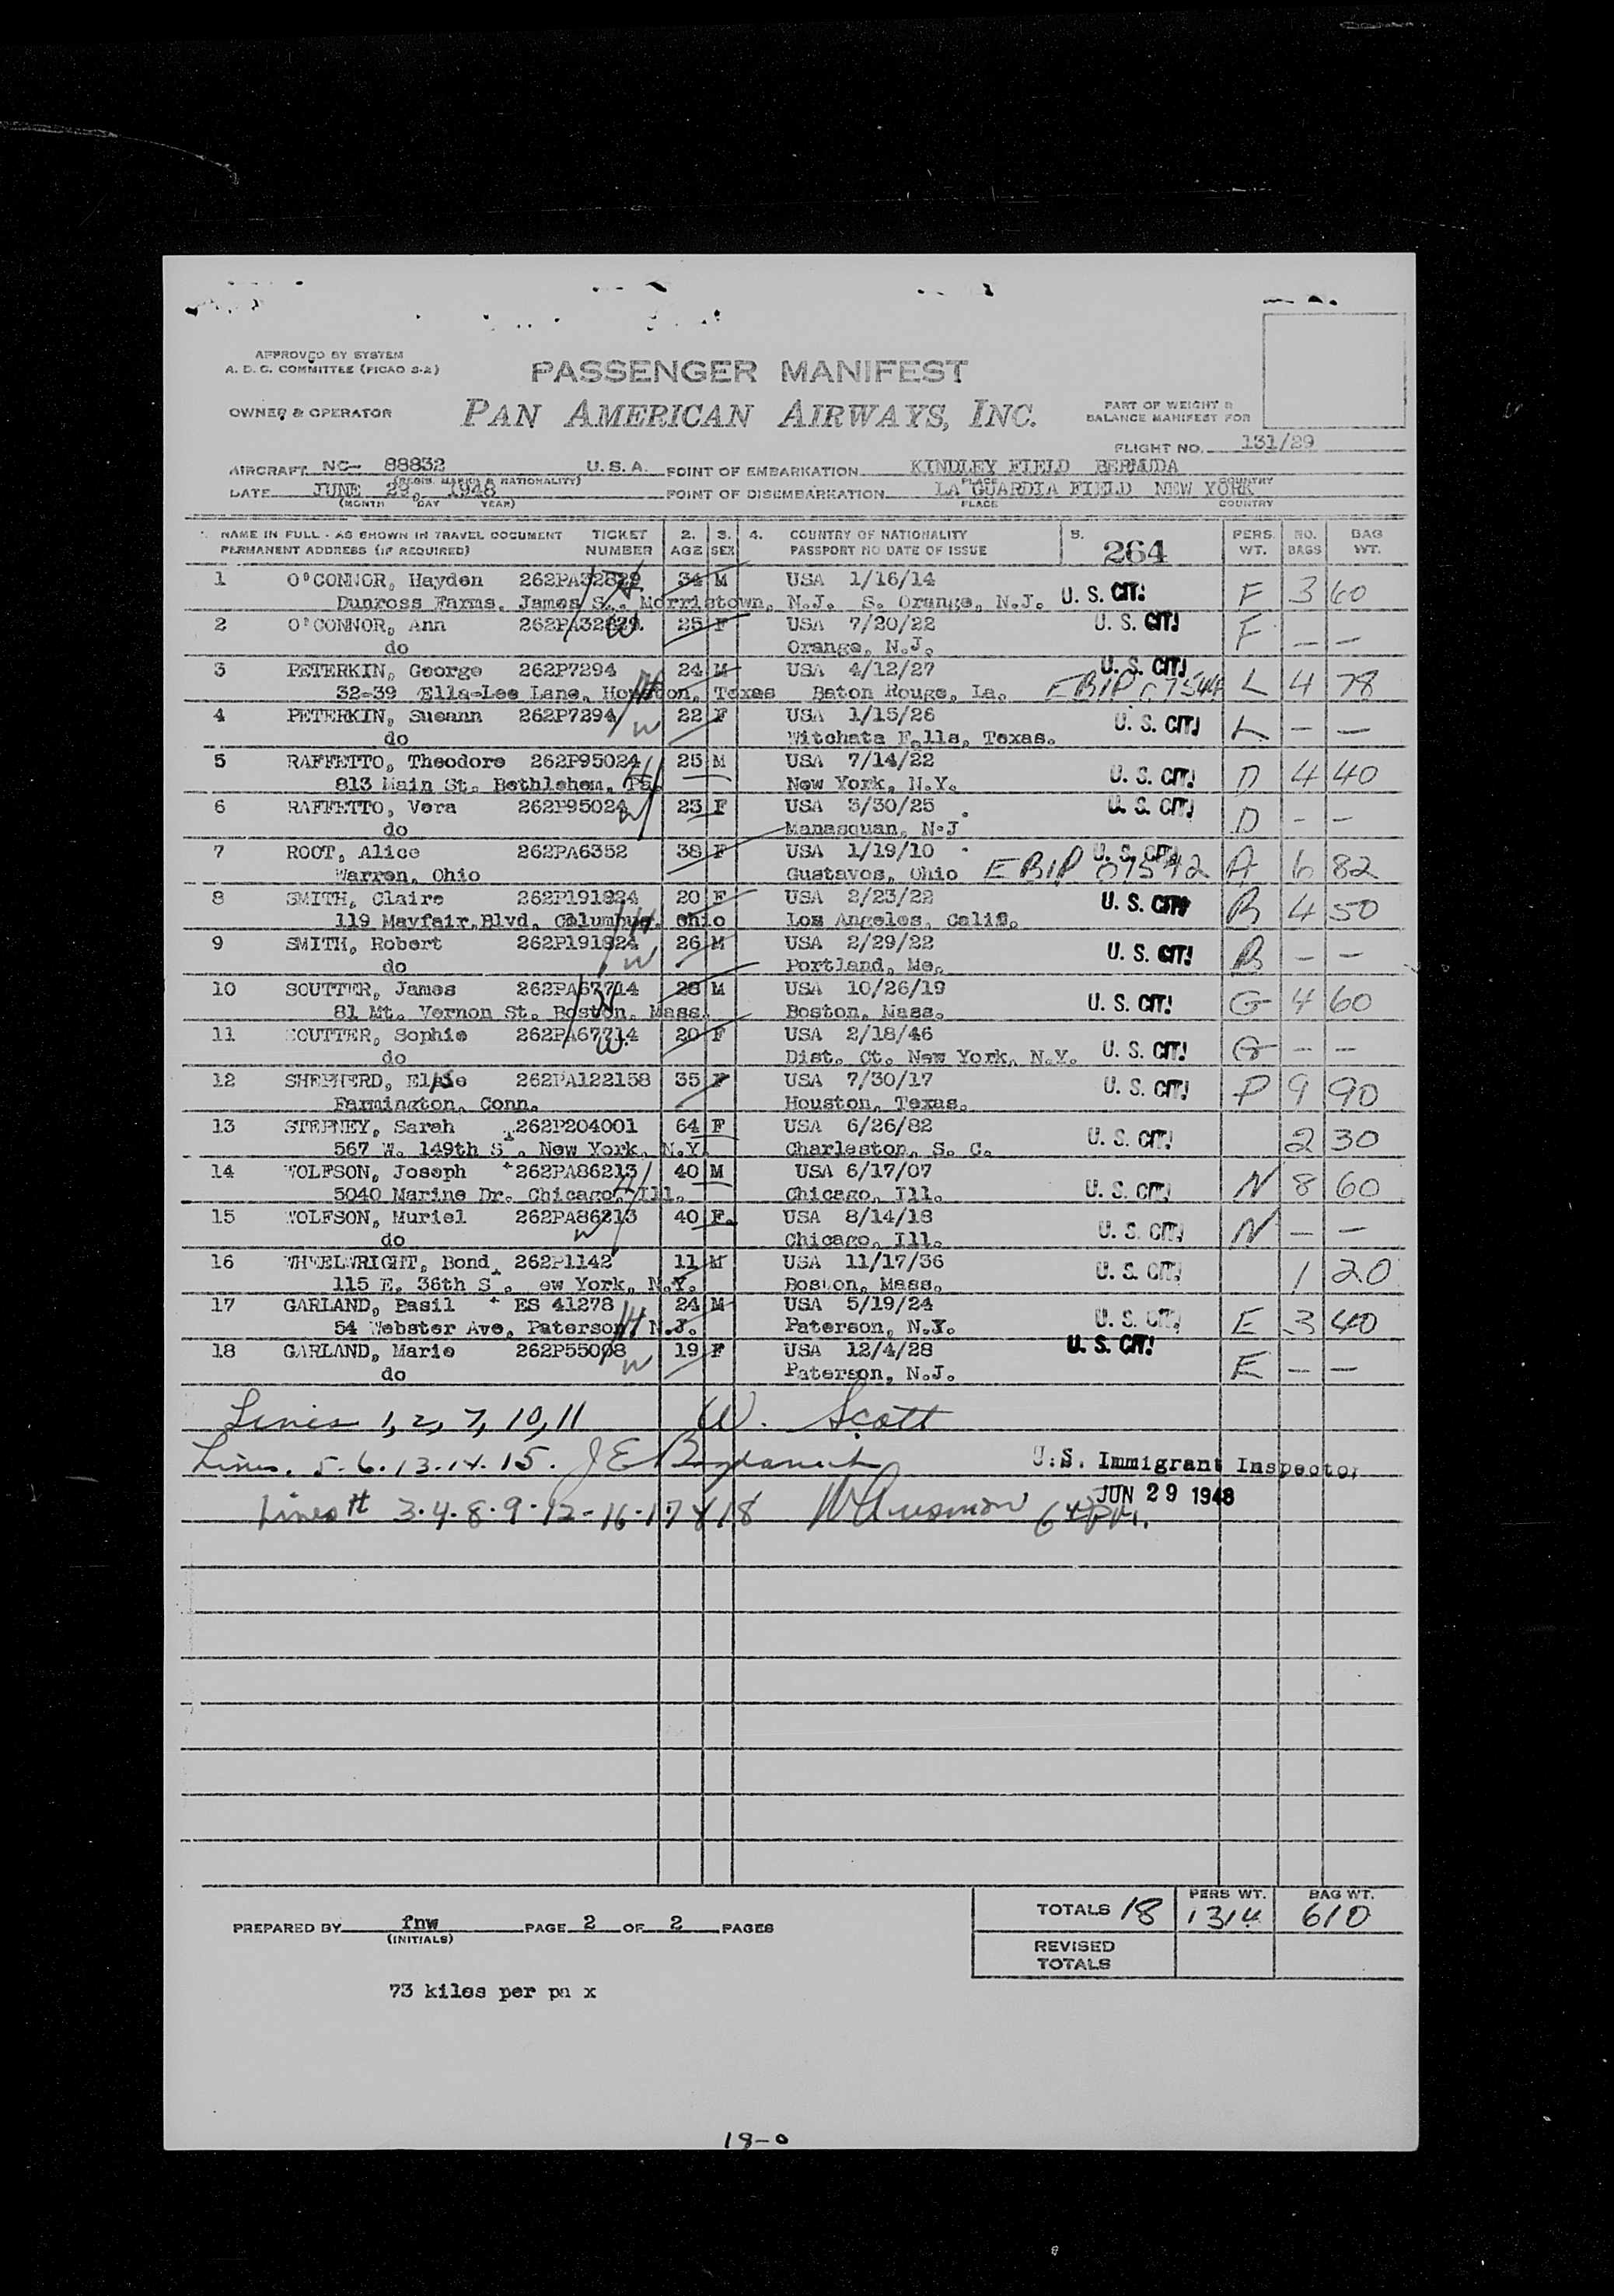 APPROVED BY SYSTEM
A. D. C. COMMITTEE (PICAO S-2)
PASSENGER MANIFEST
OWNER & OPERATOR PAN AMERICAN AIRWAYS, INC.
PART OF WEIGHT &
BALANCE MANIFEST FOR
FLIGHT NO. 131/29
AIRCRAFT NC- 88832 U. S. A. POINT OF EMBARKATION KINDLEY FIELD BERMUDA
(REGIS. MARKS & NATIONALITY) PLACE COUNTRY
DATE JUNE 29, 1948 POINT OF DISEMBARKATION LA GUARDIA FIELD NEW YORK
(MONTH DAY YEAR) PLACE COUNTRY
NAME IN FULL - AS SHOWN IN TRAVEL DOCUMENT TICKET 2. 3. 4. COUNTRY OF NATIONALITY 5. 264 PERS. NO. BAG
PERMANENT ADDRESS (IF REQUIRED) NUMBER AGE SEX PASSPORT NO DATE OF ISSUE WT. BAGS WT.
1 O'CONNOR, Hayden 262PA32829 34 M USA 1/16/14 U. S. CIT! F 3 60
Dunross Farms, James S., Morristown, N.J. S. Orange, N.J.
2 O'CONNOR, Ann 262PA32829 W 25 F USA 7/20/22 U. S. CIT! F — —
do Orange, N.J.
3 PETERKIN, George 262P7294 H 24 M USA 4/12/27 U. S. CIT! L 4 78
32-39 Ella-Lee Lane, Houston, Texas Baton Rouge, La. EBIP
4 PETERKIN, Sueann 262P7294 W 22 F USA 1/15/26 U. S. CIT! L — —
do Witchata Falls, Texas.
5 RAFFETTO, Theodore 262P95024 H 25 M USA 7/14/22 U. S. CIT! D 4 40
813 Main St. Bethlehem, Pa. New York, N.Y.
6 RAFFETTO, Vera 262P95024 W 23 F USA 3/30/25 U. S. CIT! D — —
do Manasquan, N.J
7 ROOT, Alice 262PA6352 38 F USA 1/19/10 U. S. CIT! A 6 82
Warren, Ohio Gustavos, Ohio EBIP 07592
8 SMITH, Claire 262P191924 20 F USA 2/23/22 U. S. CIT! B 4 50
119 Mayfair.Blvd, Columbus, Ohio Los Angeles, Calif.
9 SMITH, Robert 262P191924 W 26 M USA 2/29/22 U. S. CIT! B — —
do Portland, Me.
10 SOUTTER, James 262PA67714 H 28 M USA 10/26/19 U. S. CIT! G 4 60
81 Mt. Vernon St. Boston, Mass. Boston, Mass.
11 SOUTTER, Sophie 262PA67714 W 20 F USA 2/18/46 U. S. CIT! G — —
do Dist. Ct. New York, N.Y.
12 SHEPHERD, 262PA122158 35 F USA 7/30/17 U. S. CIT! P 9 90
Farmington, Conn. Houston, Texas.
13 STEPNEY, Sarah 262P204001 64 F USA 6/26/82 U. S. CIT! 2 30
567 W. 149th St. New York, N.Y. Charleston, S. C.
14 WOLFSON, Joseph 262PA86213 H 40 M USA 6/17/07 U. S. CIT! N 8 60
5040 Marine Dr. Chicago, Ill. Chicago, Ill.
15 WOLFSON, Muriel 262PA86213 W 40 F. USA 8/14/18 U. S. CIT! N — —
do Chicago, Ill.
16 WHEELWRIGHT, Bond 262P1142 11 M USA 11/17/36 U. S. CIT! 1 20
115 E. 36th St. ew York, N.Y. Boston, Mass.
17 GARLAND, Basil ES 41278 H 24 M USA 5/19/24 U. S. CIT! E 3 40
54 Webster Ave, Paterson, N.J. Paterson, N.Y.
18 GARLAND, Marie 262P55008 W 19 F USA 12/4/28 U. S. CIT! E — —
do Paterson, N.J.
Lines 1, 2, 7, 10, 11 W. Scott
Lines. 5-6.13.14.15. J E
U.S. Immigrant Inspector
Lines # 3.4.8.9.12-16.17 & 18 JUN 29 1948
PREPARED BY fnw PAGE 2 OF 2 PAGES
(INITIALS)
TOTALS 18 PERS WT. 1314 BAG WT. 610
REVISED
TOTALS
73 kilos per pa x
18-0